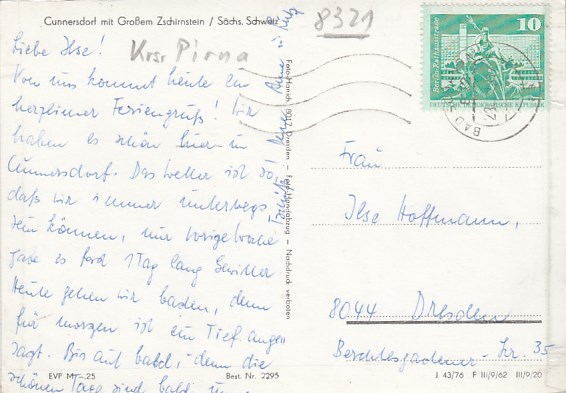 Cunnersdorf mit Großem Zschirnstein / Sächs. Schweiz
8321
Krsr Pirna
Liebe Ilse!
Von uns kommt heute ein
herzlicher Feriengruß! Wir
haben es schön hier in
Cunnersdorf. Das Wetter ist so,
daß wir immer unterwegs
sein können, nur vorige Woche
gab es fast 1 Tag lang Gewitter
Heute gehen wir baden, denn
für morgen ist ein Tief ange
sagt. Bis auf bald, denn die
schönen Tage sind bald um
EVP M -.25
Best. Nr. 2295
Foto-Hanich, 8017 Dresden – Foto-Handabzug – Nachdruck verboten
10
Berlin, Rathausstraße
BAD
Frau
Ilse Hoffmann,
8044 Dresden
Berchtesgadener- Str. 35
J 43/76 F III/9/62 III/9/20